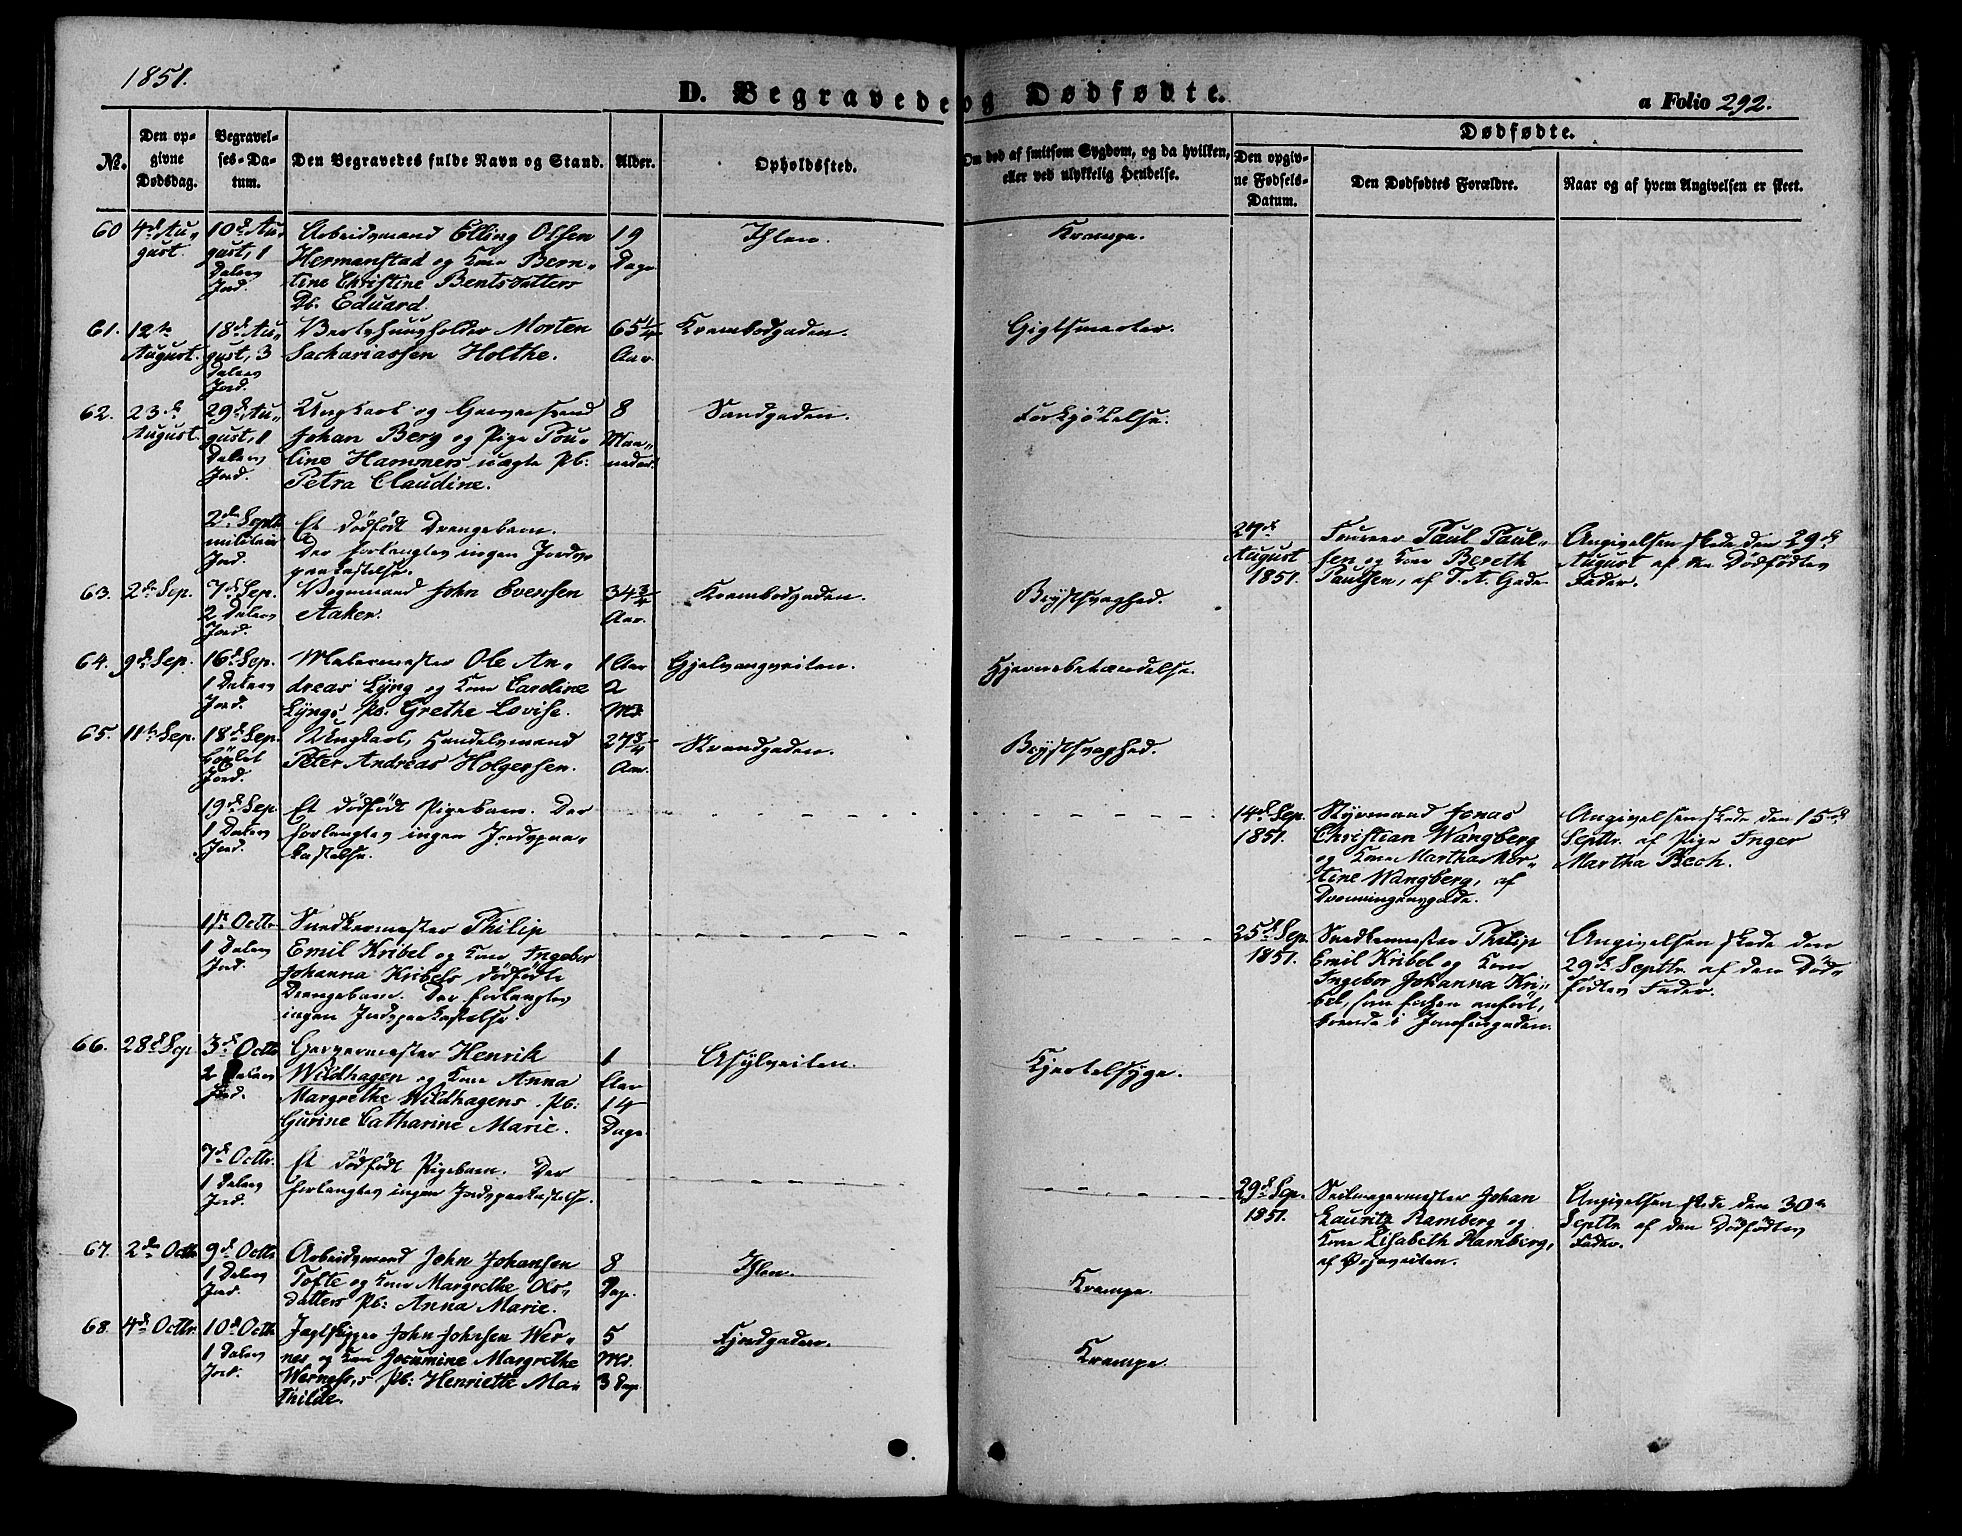 1851.
D. Begravede og Dødfødte.
a Folio 292.
No.
Den op-
givne
Dødsdag.
Begravel-
ses-Da-
tum.
Den Begravedes fulde Navn og Stand.
Alder.
Opholdssted.
Om død af smitsom Sygdom, og da hvilken,
eller ved ulykkelig Hendelse.
Dødfødte.
Den opgiv-
ne Fødsels-
Datum.
Den Dødfødtes Forældre.
Naar og af hvem Angivelsen er skeet.
60
4de Au-
gust.
10de Au-
gust, 1
Dalers
Jord.
Arbeidsmand Elling Olsen
Hermanstad og Kone Bern-
tine Christine Bentsdatters
Db: Eduard.
19
Dage
Ihlen.
Krampe.
61.
12te
August.
18de Au-
gust, 3
Dalers
Jord.
Morten
Sachariassen Holthe.
65 1/4
Aar.
Krambodgaden.
Gigtsmerter.
62.
23de
August.
29de Au-
gust, 1
Dalers
Jord.
Ungkarl og Garversvend
Johan Berg og Pige Pou-
line Hammers uægte Pb:
Petra Claudine.
8
Maa-
neder.
Sandgaden.
Forkjölelse.
2de Septb
militair
Jord.
Et dödfödt Drengebarn.
Der forlangtes ingen Jords-
paakastelse.
27de
August
1851.
Foureer Paul Paul-
sen og Kone Bereth
Paulsen, af T. A. Gade
Angivelsen skede den 29de
August af den Dödfödtes
Fader.
63.
2de Sep.
7de Sep.
2 Dalers
Jord.
Vognmand John Evensen
Aaker.
34 3/4
Aar.
Krambodgaden.
Brystsvaghed.
64.
9de Sep.
16de Sep.
1 Dalers
Jord.
Malermester Ole An-
dreas Lyng og Kone Caroline
Lyngs Pb: Grethe Lovise.
1 Aar
2
Md.
Gjelvangveiten.
Hjernebetændelse.
65.
11te Sep.
18de Sep.
Jord.
Ungkarl, Handelsmand
Peter Andreas Holgersen.
27 3/4
Aar.
Strandgaden.
Brystsvaghed.
19de Sep
1 Dalers
Jord.
Et dödfödt Pigebarn. Der
forlangtes ingen Jordspaa-
kastelse.
14de Sep.
1851.
Styrmand Jonas
Christian Wangberg
og Kone Martha Kor-
tine Wangberg, af
Dronningensgade.
Angivelsen skede den 15de
Septbr. af Pige Inger
Martha Bech.
1ste Octbr
1 Dalers
Jord.
Snedkermester Philip
Emil Kribel og Kone Ingebor
Johanna Kribels dödfödte
Drengebarn. Der forlangtes
ingen Jordspaakastelse.
25de Sep.
1851.
Snedkermester Philip
Emil Kribel og Kone
Ingebor Johanna Kri-
bel, som foran anfört,
boende i Jomfrugaden.
Angivelsen skede den
29de Septbr. af den Död-
födtes Fader.
66.
28de Sep
3de Octb
2 Dalers
Jord.
Garvermester Henrik
Wildhagen og Kone Anna
Margrethe Wildhagens Pb:
Gurine Catharine Marie.
1
Aar
14
Dage.
Asylveiten.
Kjertelsyge.
7de Octbr.
1 Dalers
Jord.
Et dödfödt Pigebarn. Der
forlangtes ingen Jordspaakastelse.
29de Sep.
1851.
Seilmagermester Johan
Lauritz Ramberg og
Kone Elisabeth Ramberg,
af Örjaveiten.
Angivelsen skede den 30te
Septbr. af den Dödfödtes
Fader.
67.
2den Octb
9de Octb
1 Dalers
Jord.
Arbeidsmand John Johansen
Tofte og Kone Margrethe Ols-
datters Pb: Anna Marie.
8
Dage.
Ihlen.
Krampe.
68.
4de Octbr.
10de Octb
1 Dalers
Jord.
Jagtskipper John Johnsen Wer-
nes og Kone Jocumine Margrethe
Pb: Henriette Ma-
thilde.
5
Md.
3 Dage
Fjordgaden.
Krampe.